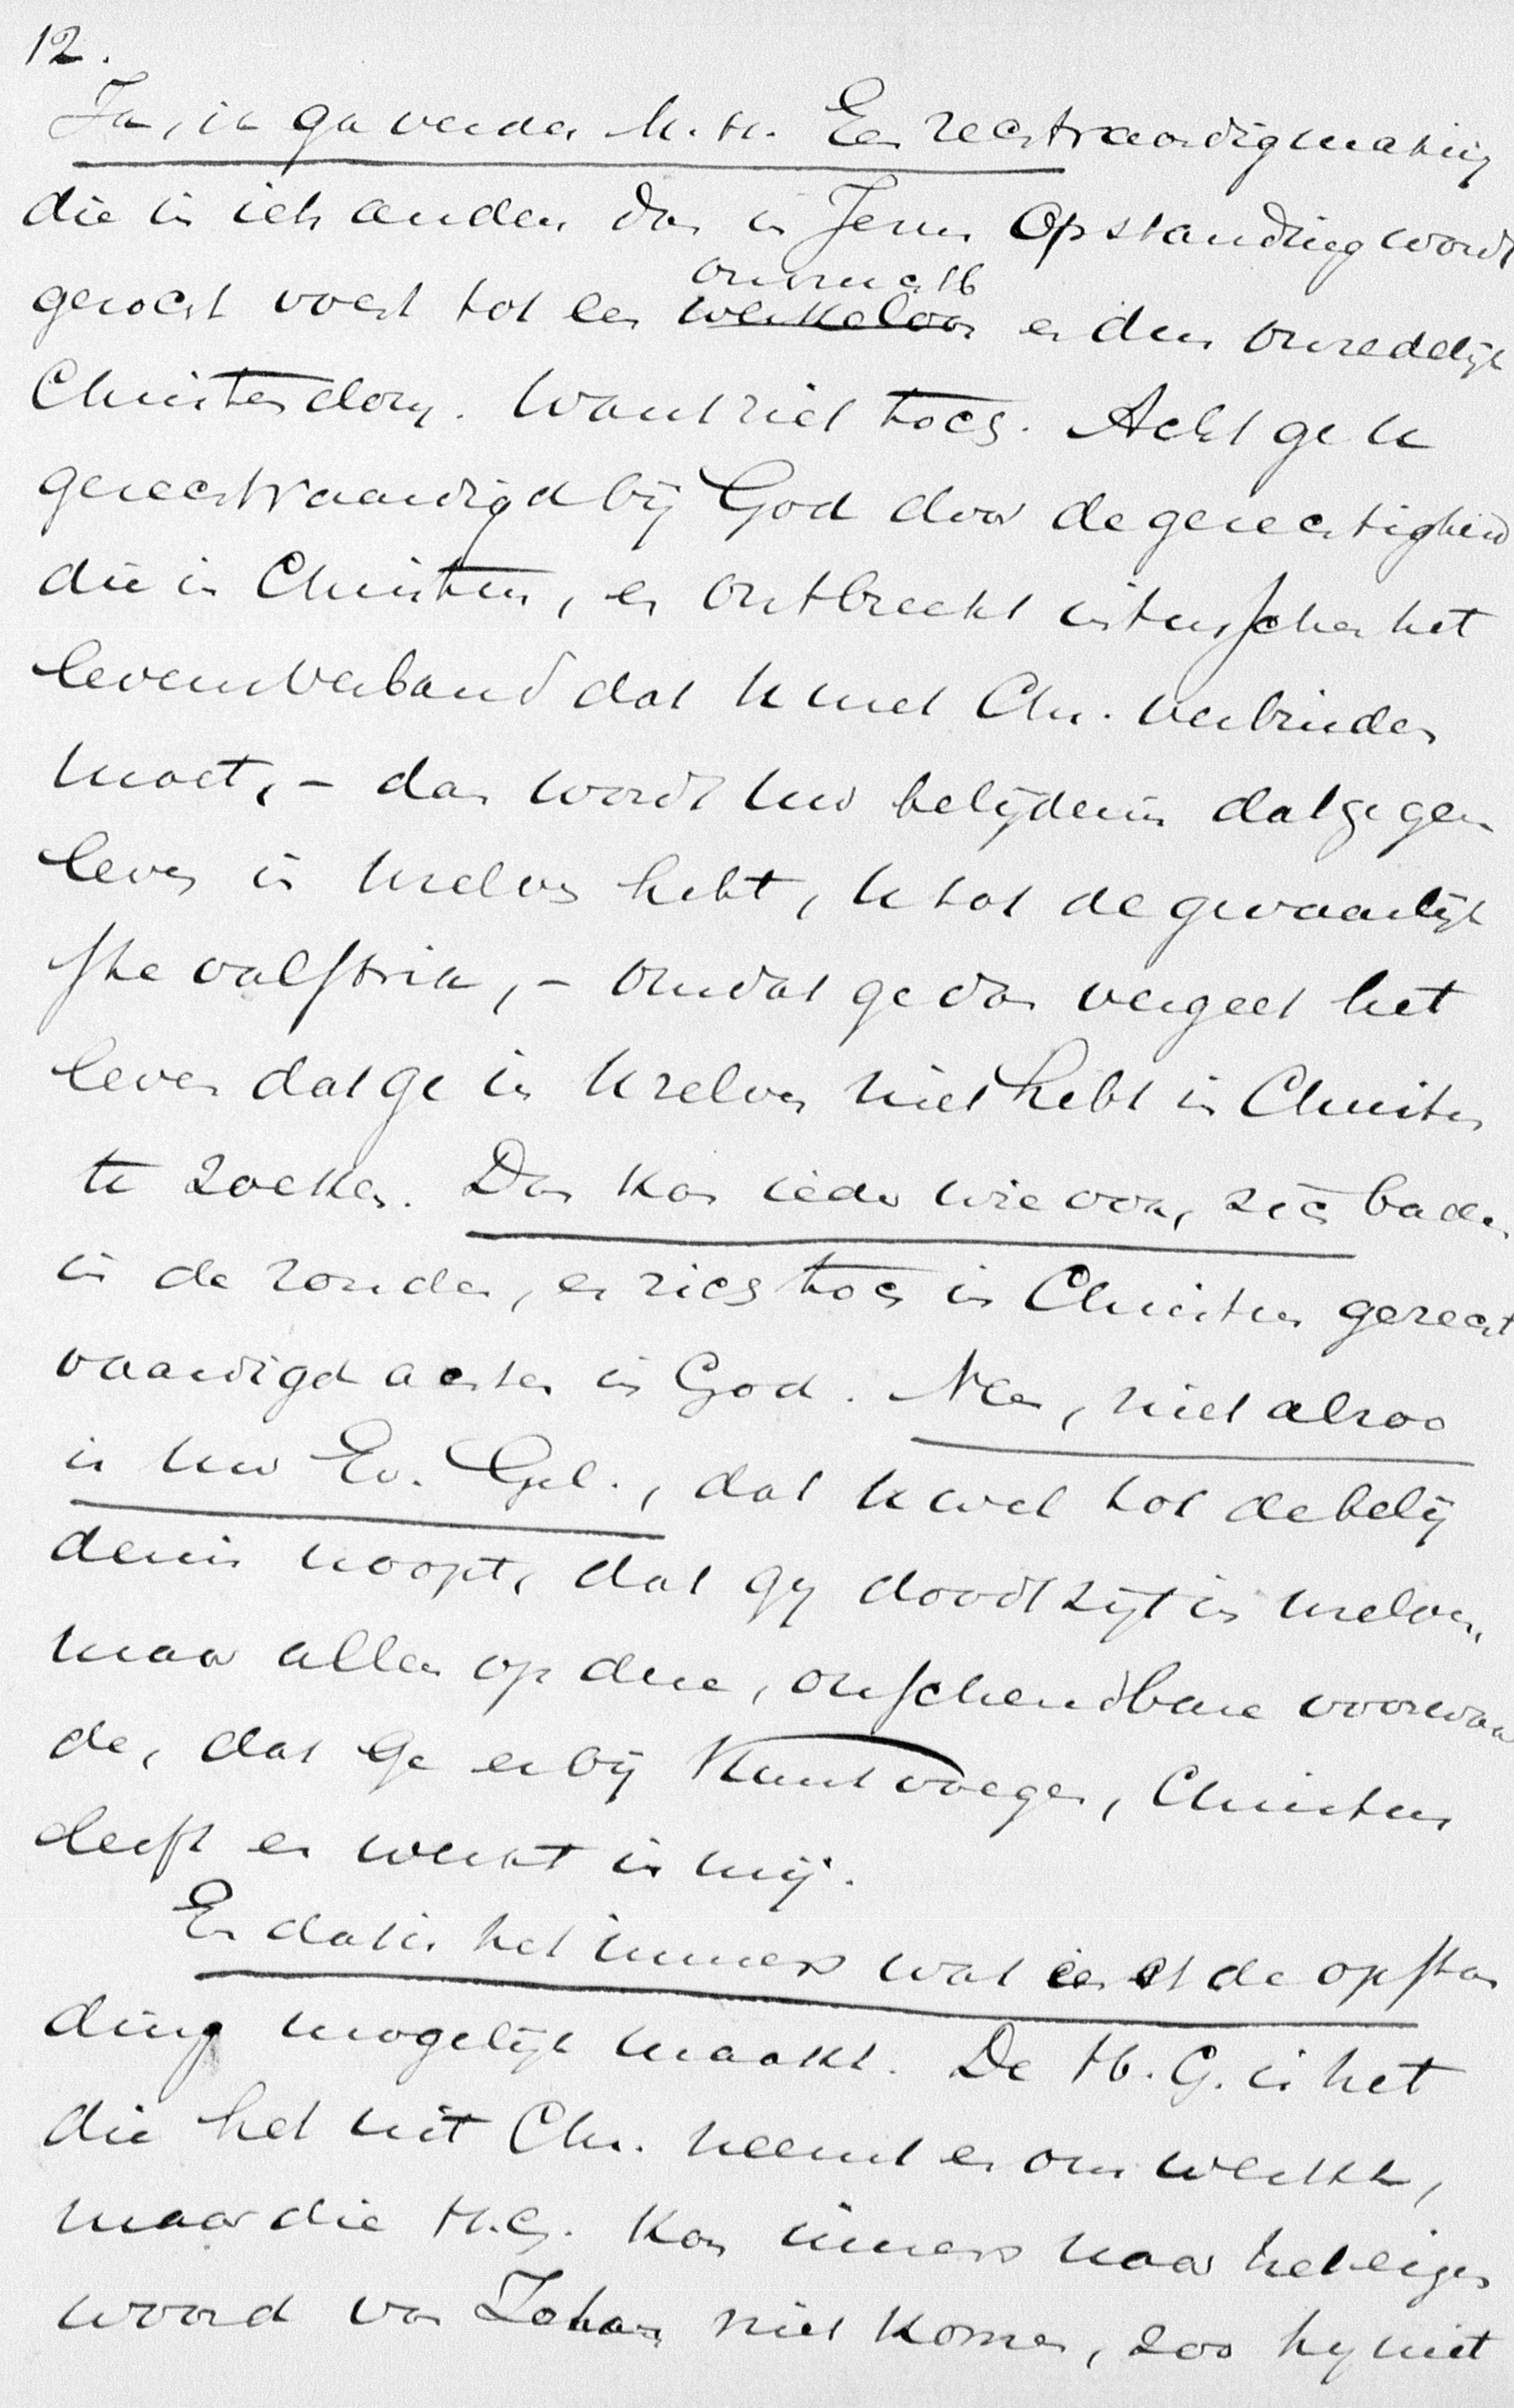 12.
Ja, ik ga verder M.H. Een rechtvaardigmaking
die in iets anders dan in Jezus Opstanding wordt
gezocht voert tot een werkeloos en dus onzedelijk
Christendom. Want ziet toch. Acht ge U
gerechtvaardigd bij God door de gerechtigheid
die in Christus, en ontbreekt intusschen het
levensverband dat U met Chr. verbinden
moet, – dan wordt uw belijdenis dat ge geen
leven in Uzelven hebt, U tot de gevaarlijk
ste valstrik, – omdat ge dan vergeet het
leven dat ge in Uzelven niet hebt in Christus
te zoeken. Dan kan ieder wie ook, zich baden
in de zonden, en zich toch in Christus gerecht
vaardigd achten in God. Neen, niet alzoo
is uw Ev. Gel., dat U wel tot de belij
denis noopt, dat gij dood zijt in Uzelven,
maar alleen op deze, onschendbare voorwaar
de, dat Ge erbij kunt voegen, Christus
leeft en werkt in mij.
En dat is het immers wat eerst de opstan
ding mogelijk maakt. De H.G. is het
die het uit Chr. neemt en ons werkt,
maar die H.G. kon immers naar het eigen
woord van Johan niet komen, zoo hij niet